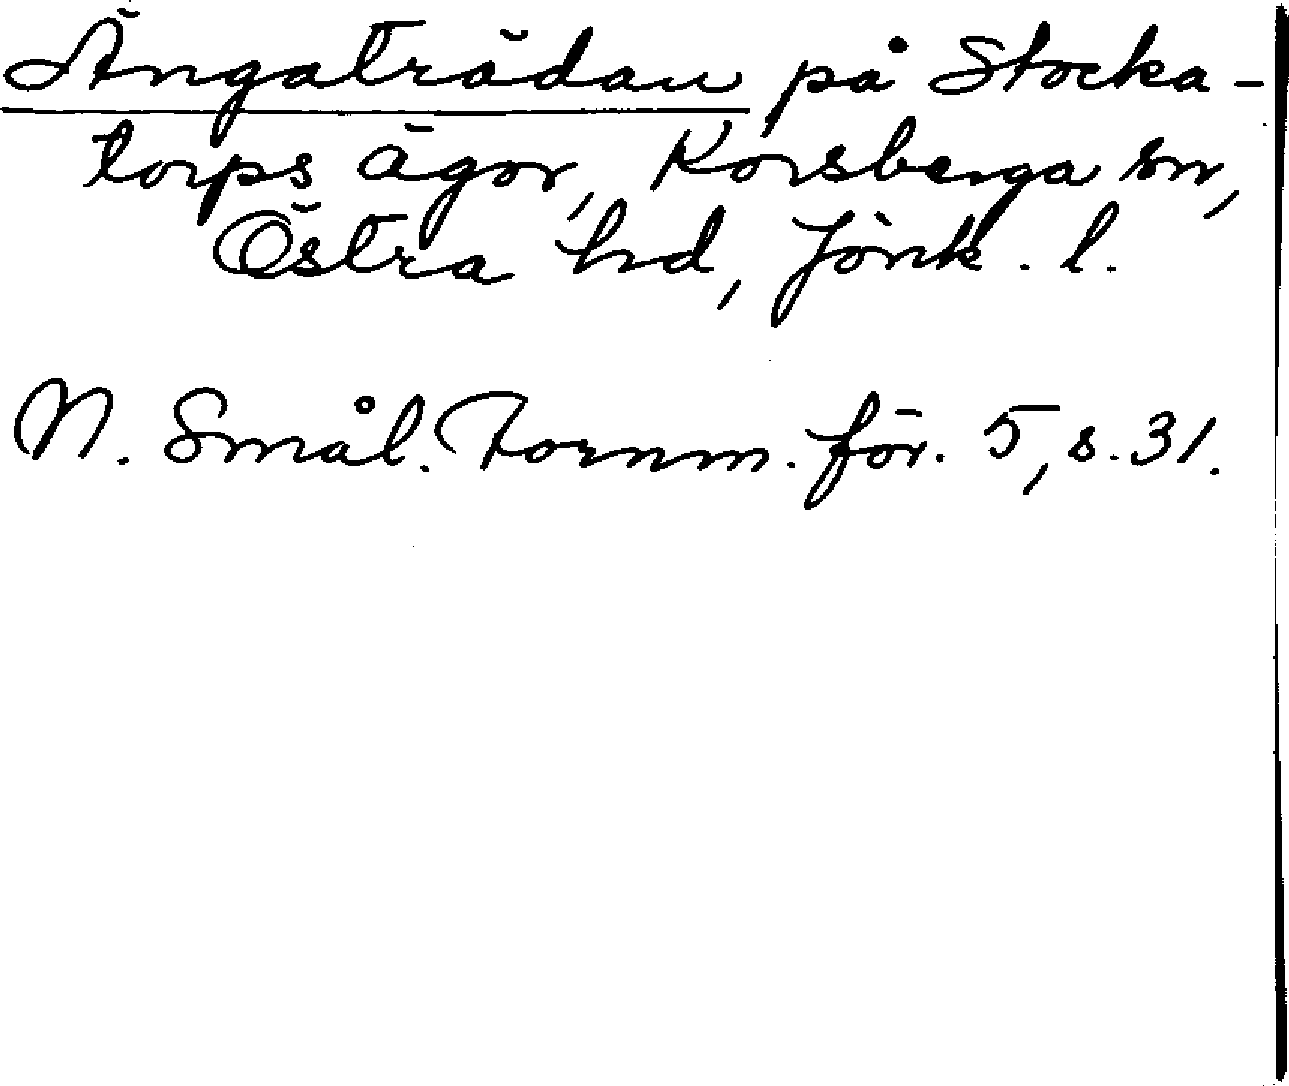 Ängaträdan på Stocka-
torps ägor, Korsberga sn,
Östra hd, Jönk. l.
N. Smål. Fornm. för. 5, s. 31.